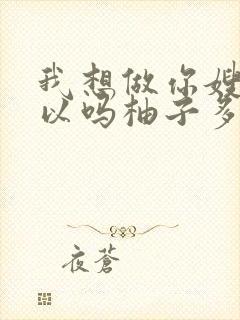 我想做你嫂
以吗柚子多
夜苍